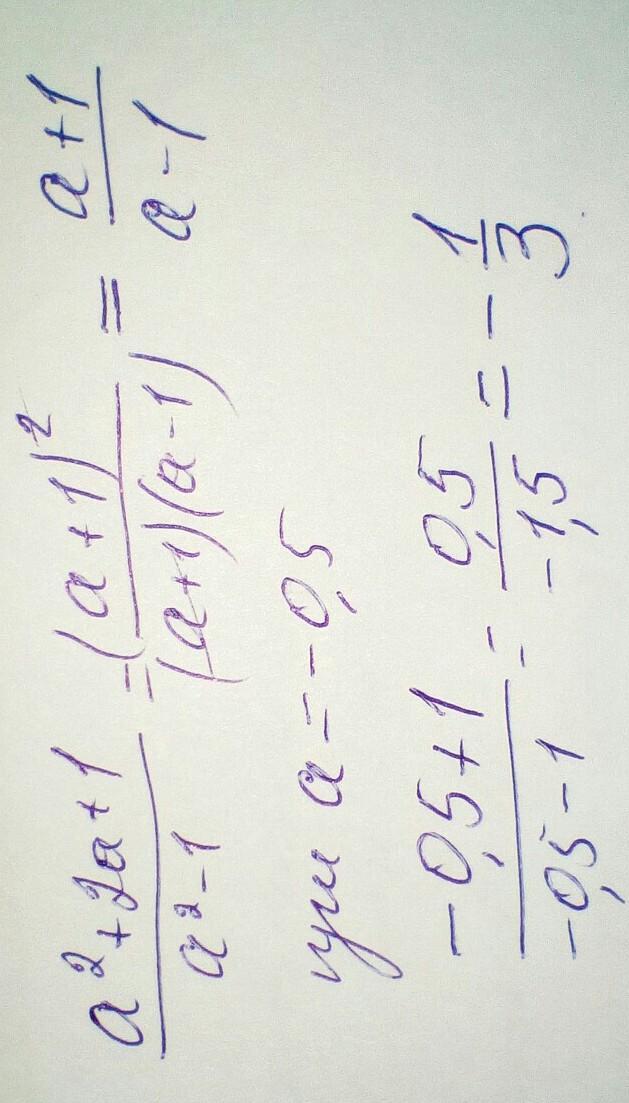 a²+2a+1/a²-1 = (a+1)²/(a+1)(a-1) = a+1/a-1
при a=-0,5
-0,5+1/-0,5-1 = 0,5/-1,5 = -1/3